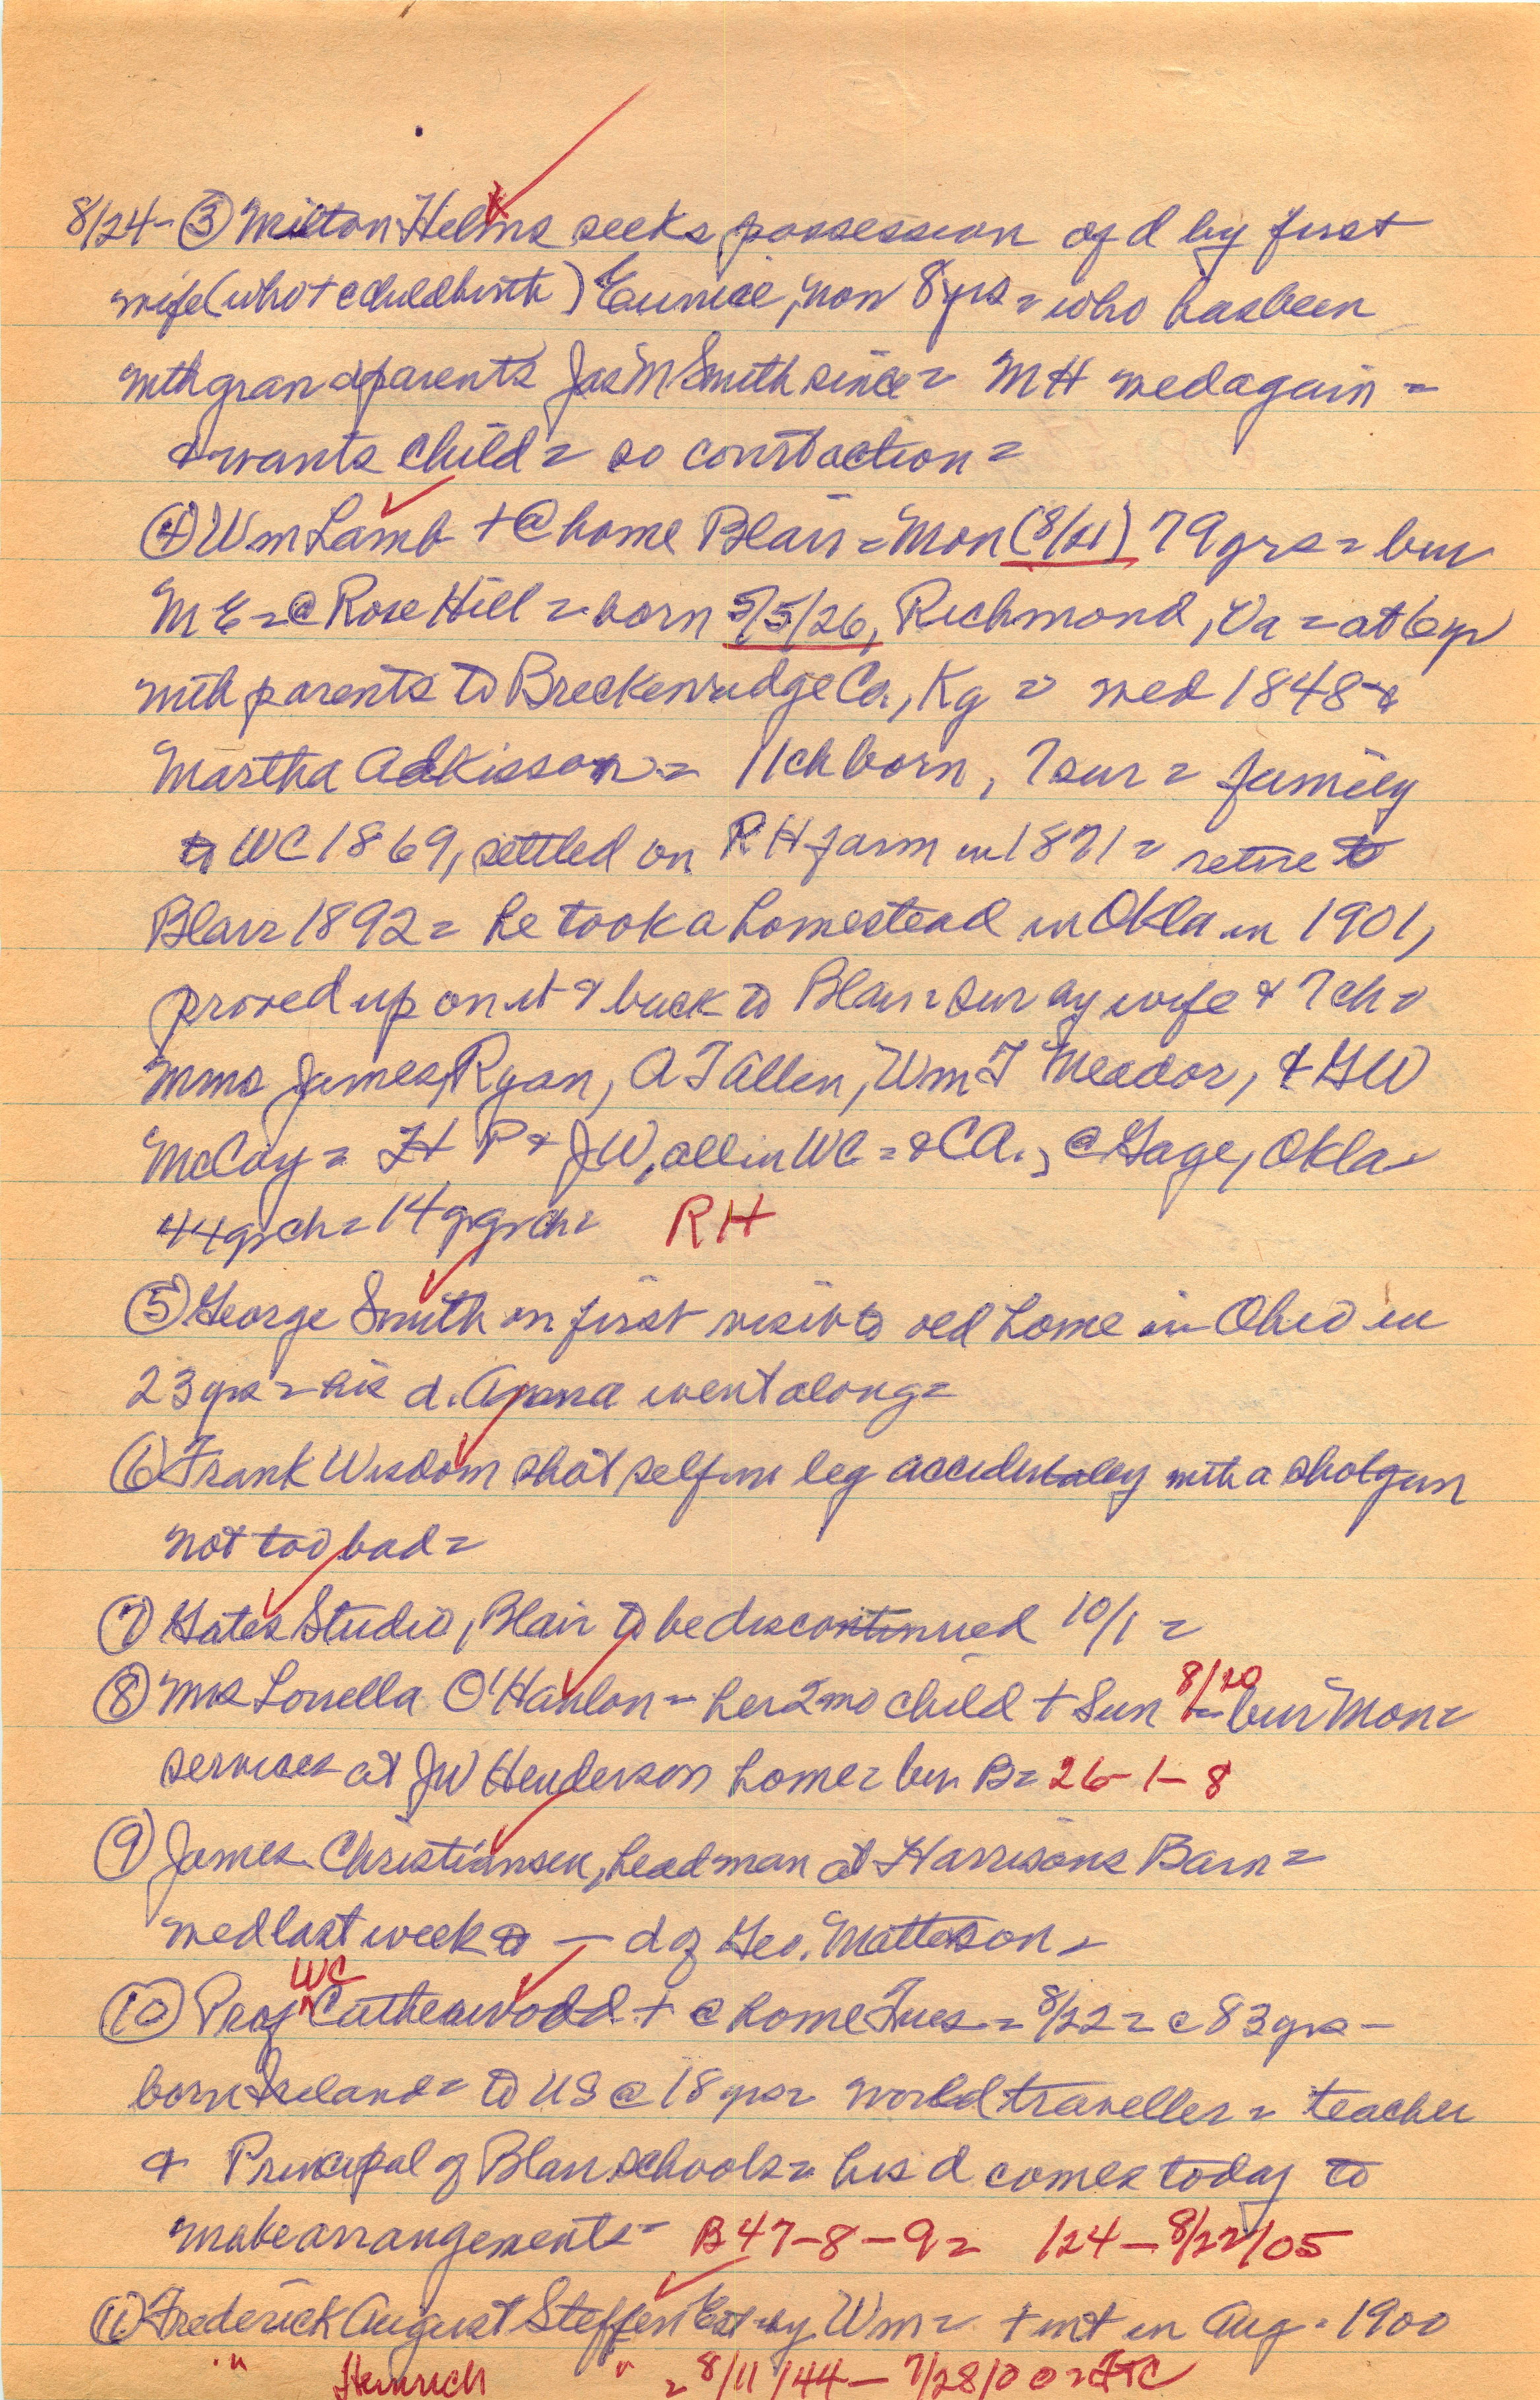 8/24 - ③ Milton Helms seeks possession of d by first
wife (who + childbirth) Eunice, now 8 yrs = who has been
with grandparents Jas M Smith since = MH med again =
& wants child = so court action =
④ Wm Lamb + @ home Blair = Mon (8/21) 79 yrs = bur
ME = @ Rose Hill = born 5/5/26, Richmond, Va = at 6 yr
with parents to Breckenridge Co., Ky = med 1848 =
Martha Adkisson = 11 ch born, 7 sur = family
to WC 1869, settled on RH farm in 1871 = retire to
Blair 1892 = he took a homestead in Okla in 1901,
proved up on it & back to Blair = sur by wife & 7 ch =
Mms James Ryan, A T Allen, Wm T Meador, & GW
McCoy = H P & JW, all in WC = & CA., @ Gage, Okla =
44 grch = 14 grgrch = RH
⑤ George Smith on first visit to old home in Ohio in
23 yrs = his d. Anna went along =
⑥ Frank Wisdom shot self in leg accidentally with a shotgun
not too bad =
⑦ Gates Studio, Blair to be discontinued 10/1 =
⑧ Mrs Louella O'Hanlon = her 2 mo child + Sun 8/20 = bur Mon =
services at JW Henderson home = bur B = 26-1-8
⑨ James Christiansen, head man at Harrisons Barn =
med last week to — d of Geo. Matteson =
⑩ Prof WC Catherwood + @ home Tues = 8/22 = c 83 yrs -
born Ireland = to US @ 18 yrs = world traveller = teacher
& Principal of Blair schools = his d comes today to
make arrangements = B 47-8-9 = 124 - 8/22/05
⑪ Frederick August Steffen Est by Wm = + int in Aug. 1900
" Heinrich " = 8/11/44 - 7/28/00 = FTC